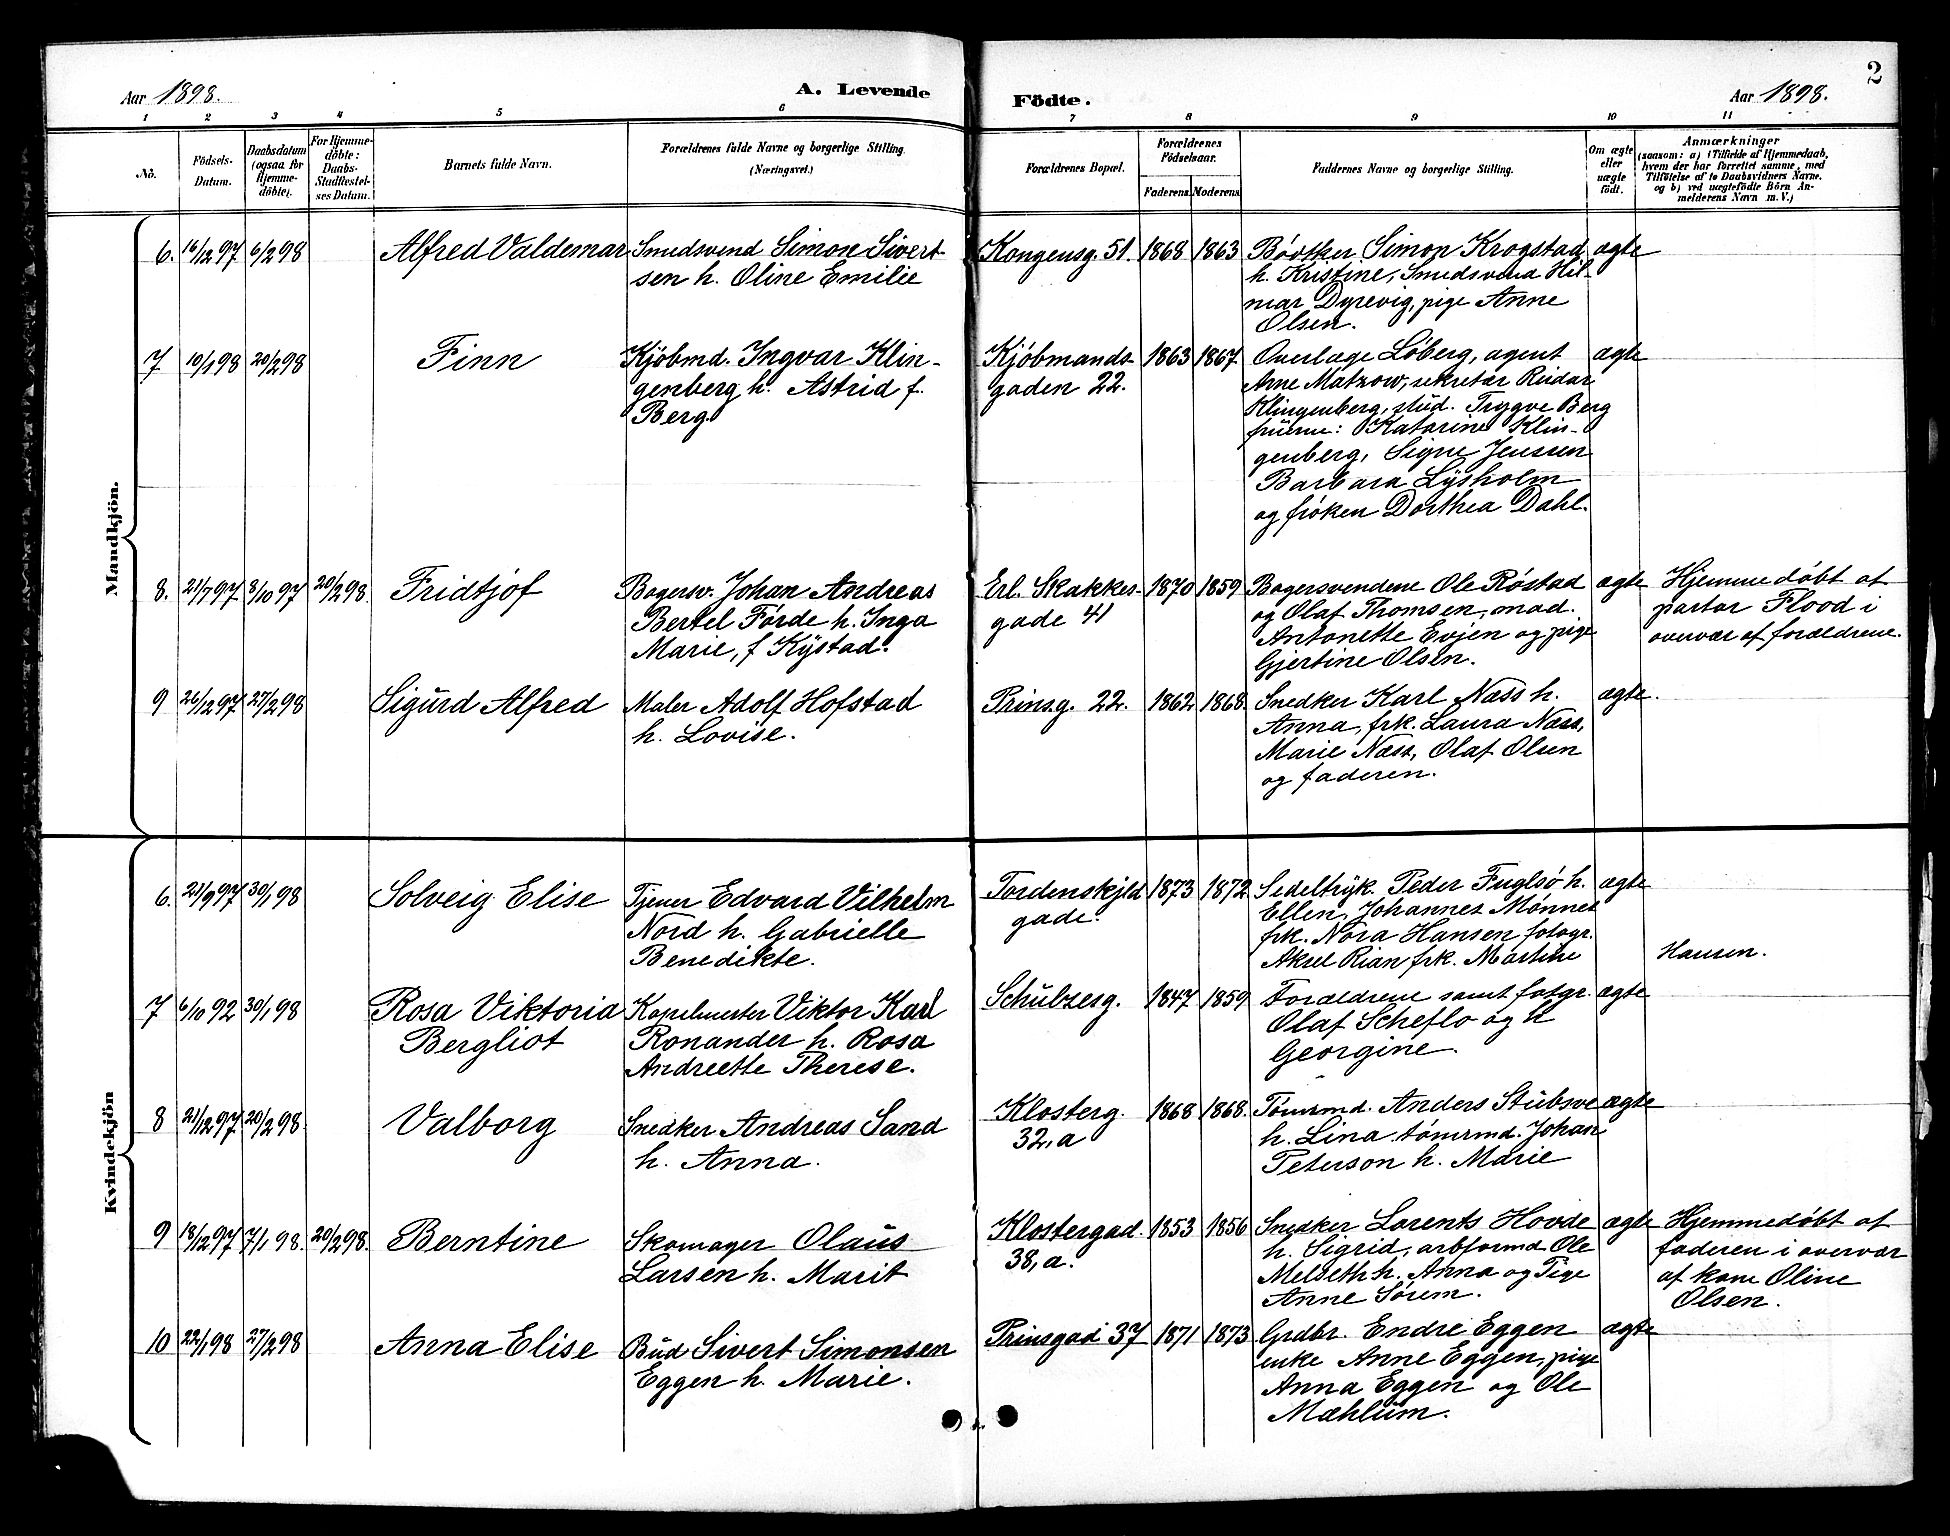 2
Aar 1898.
A. Levende
Födte.
Aar 1898.
1 2 3 4 5 6 7 8 9 10 11
No.
Födsels-
Datum.
Daabsdatum
(ogsaa for
Hjemme-
döbte).
For Hjemme-
döbte:
Daabs-
Stadfestel-
ses Datum.
Barnets fulde Navn.
Forældrenes fulde Navne og borgerlige Stilling.
(Næringsvei.)
Forældrenes Bopæl.
Forældrenes
Födselsaar.
Faderens. Moderens.
Faddernes Navne og borgerlige Stilling.
Om ægte
eller
uægte
födt.
Anmærkninger
(saasom: a) i Tilfælde af Hjemmedaab,
hvem der har forrettet samme, med
Tilföielse af to Daabsvidners Navne.
og b) ved uægtefödte Börn An-
melderens Navn m. V.)
Mandkjön.
6. 16/12 97 6/2 98 Alfred Valdemar
Smedsvend Simon Sivert-
sen h. Oline Emilie
Kongensg. 51. 1868 1863
Bødtker Simon Krogstad
h. Kristine, Smedsvend Hil-
mar Dyrevig, pige Anne
Olsen.
ægte
7 10/1 98 20/2 98 Finn
Kjøbmd. Ingvar Klin-
genberg h. Astrid f.
Berg.
Kjøbmands-
gaden 22.
1863 1867.
Overlæge Løberg, agent
Arne Matzow, sekretær Reidar
Klingenberg, stud. Trygve Berg
fruerne: Katarine Klin-
genberg, Signe Jenssen
Barbara Lysholm
og frøken Dorthea Dahl.
ægte
8. 21/7 97 3/10 97 20/2 98. Fridtjof
Bagersv. Johan Andreas
Bertel Førde h. Inga
Marie, f Kystad.
Erl. Skakkes-
gade 41
1870 1859
Bagersvendene Ole Røstad
og Olaf Thomsen, mad.
Antonette Evjen og pige
Gjertine Olsen.
ægte
Hjemmedøbt af
pastor Flood i
overvær af forældrene.
9 26/12 97 27/2 98 Sigurd Alfred
Maler Adolf Hofstad
h. Lovise.
Prinsg. 22. 1862 1868
Snedker Karl Næss h.
Anna, frk. Laura Næss,
Marie Næss, Olaf Olsen
og faderen.
ægte.
Kvindekjön
6. 21/9 97 30/1 98 Solveig Elise
Tjener Edvard Vilhelm
Nord h. Gabrielle
Benedikte.
Tordenskjld
gade.
1873 1872
Sedeltryk. Peder Fuglsø h.
Ellen, Johannes Mønnes
frk. Nora Hansen fotogr.
Aksel Rian frk. Martine
ægte
Hansen.
7 6/10 92 30/1 98 Rosa Viktoria
Bergliot
Kapelmester Viktor Karl
Ronander h. Rosa
Andreette Therese.
Schulzesg. 1847 1859
Forældrene samt fotgr.
Olaf Scheflo og h
Georgine.
ægte
8 21/12 97 20/2 98. Valborg
Snedker Andreas Sand
h. Anna.
Klosterg.
32, a
1868 1868.
Tømrmd. Anders Stubsve
h. Lina tømrmd. Johan
Peterson h. Marie
ægte
9 18/12 97 7/1 98. 20/2 98. Berntine
Skomager Olaus
Larsen h. Marit
Klostergad.
38, a.
1853 1856
Snedker Lorents Hovde
h. Sigrid, arbformd Ole
Melseth h. Anna og Pige
Anne Sørem.
ægte
Hjemmedøbt af
faderen i overvær
af kone Oline
Olsen.
10 22/1 98 27/2 98 Anna Elise
Bud Sivert Simonsen
Eggen h. Marie.
Prinsgad 37 1871 1873
Grdbr. Endre Eggen
enke Anne Eggen, pige
Anna Eggen og Ole
Mæhlum.
ægte